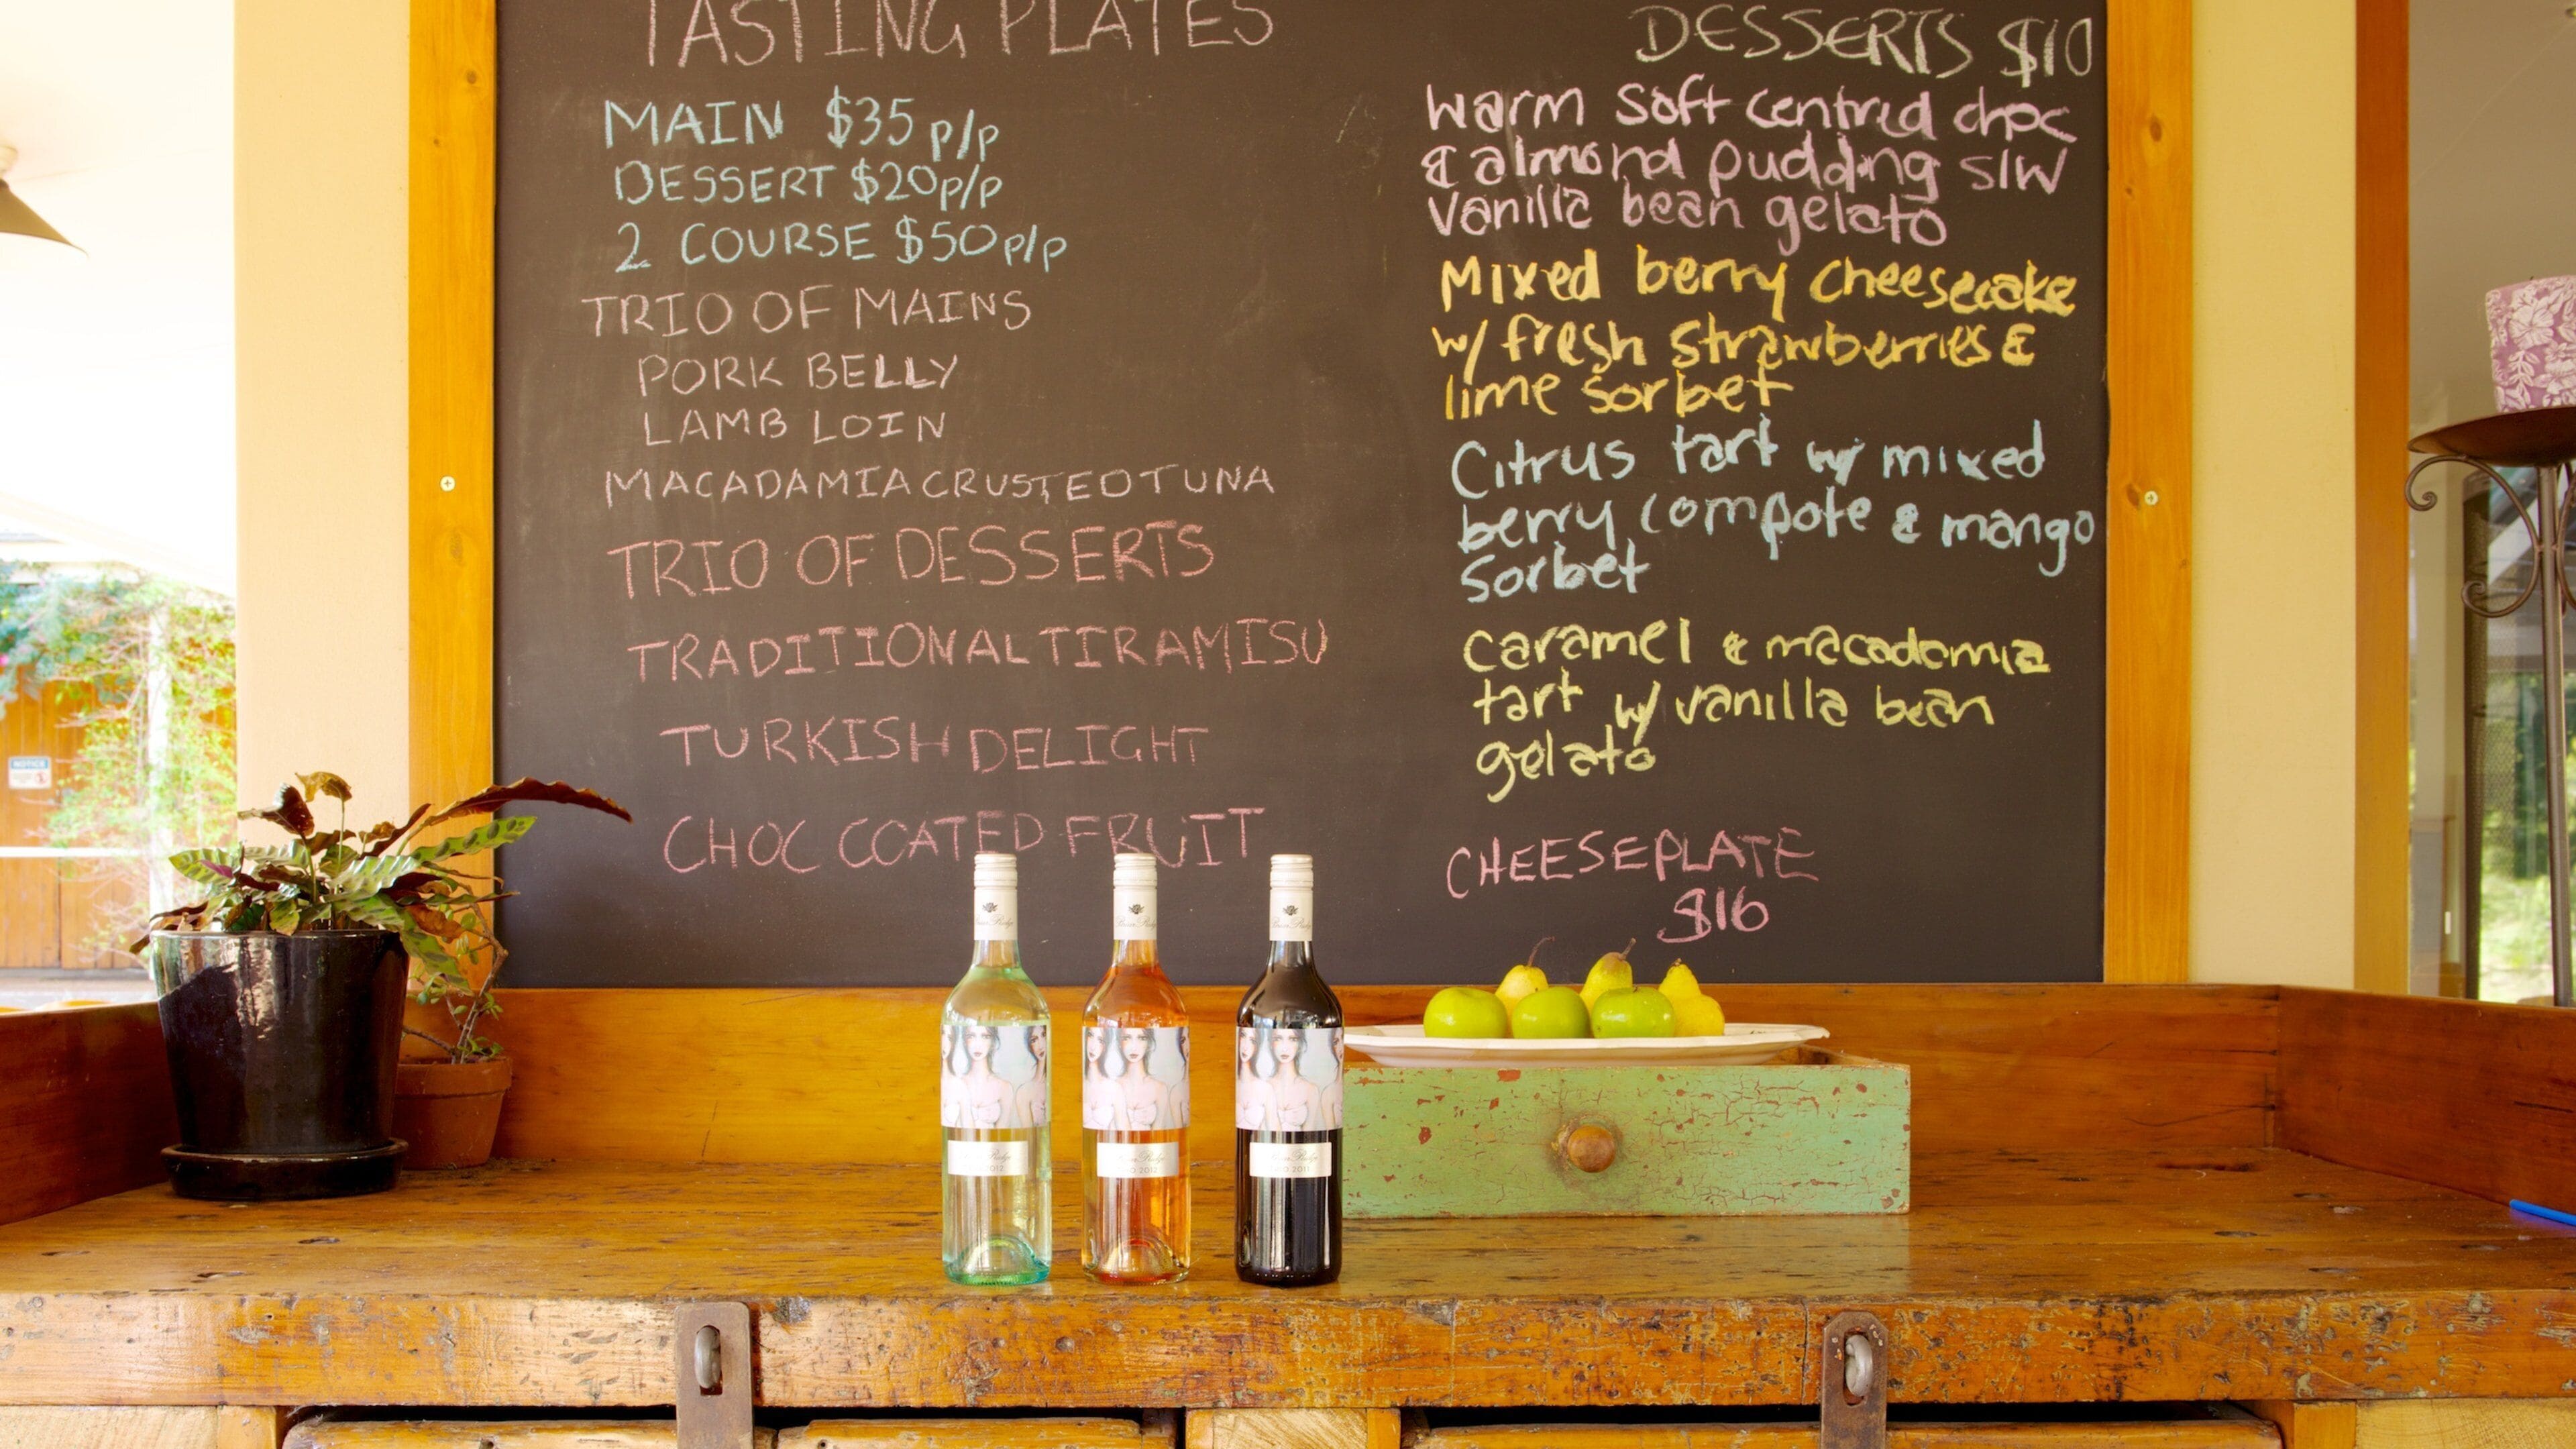 TASTING PLATES
MAIN $35 p/p
DESSERT $20 p/p
2 COURSE $50 p/p
TRIO OF MAINS
PORK BELLY
LAMB LOIN
MACADAMIA CRUSTED TUNA
TRIO OF DESSERTS
TRADITIONAL TIRAMISU
TURKISH DELIGHT
CHOC COATED FRUIT
DESSERTS $10
warm soft centred choc
& almond pudding S/W
vanilla bean gelato
Mixed berry cheesecake
w/ fresh strawberries &
lime sorbet
Citrus tart w/ mixed
berry compote & mango
sorbet
caramel & macadamia
tart w/ vanilla bean
gelato
CHEESEPLATE
$16
NOTICE
Ridge
2012
Ridge
2012
Ridge
2011